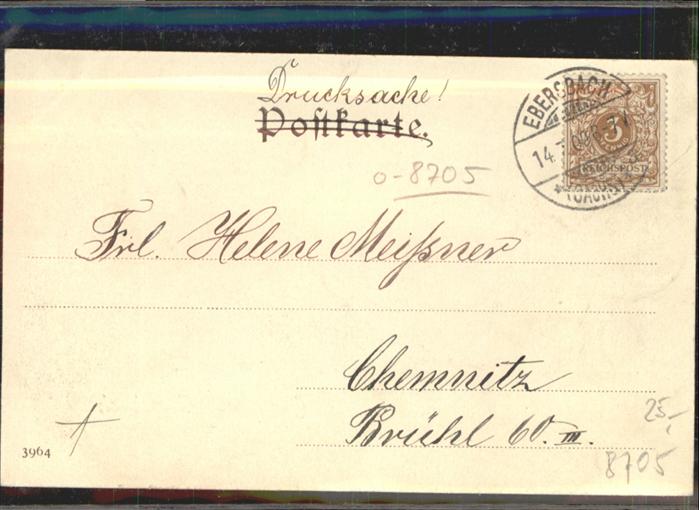 Drucksache!
Postkarte.
EBERSBACH
3
REICHSPOST
14.
(SACHS.)
o-8705
Frl. Helene Meißner
Chemnitz
Brühl 60. III.
25,-
3964
8705